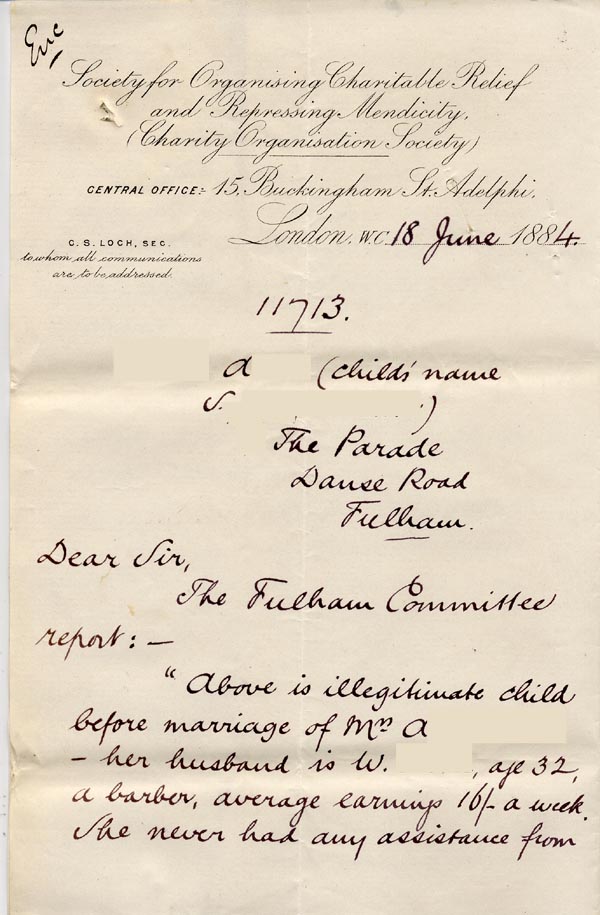 Enc
Society for Organising Charitable Relief
and Repressing Mendicity.
(Charity Organisation Society)
CENTRAL OFFICE:- 15, Buckingham St. Adelphi,
London. W.C. 18 June 1884.
C. S. LOCH, SEC.
to whom all communications
are to be addressed.
11713.
A (child's name
S. )
The Parade
Danse Road
Fulham.
Dear Sir,
The Fulham Committee
report: —
" Above is illegitimate child
before marriage of Mrs A
- her husband is W. , age 32,
a barber, average earnings 16/- a week.
She never had any assistance from